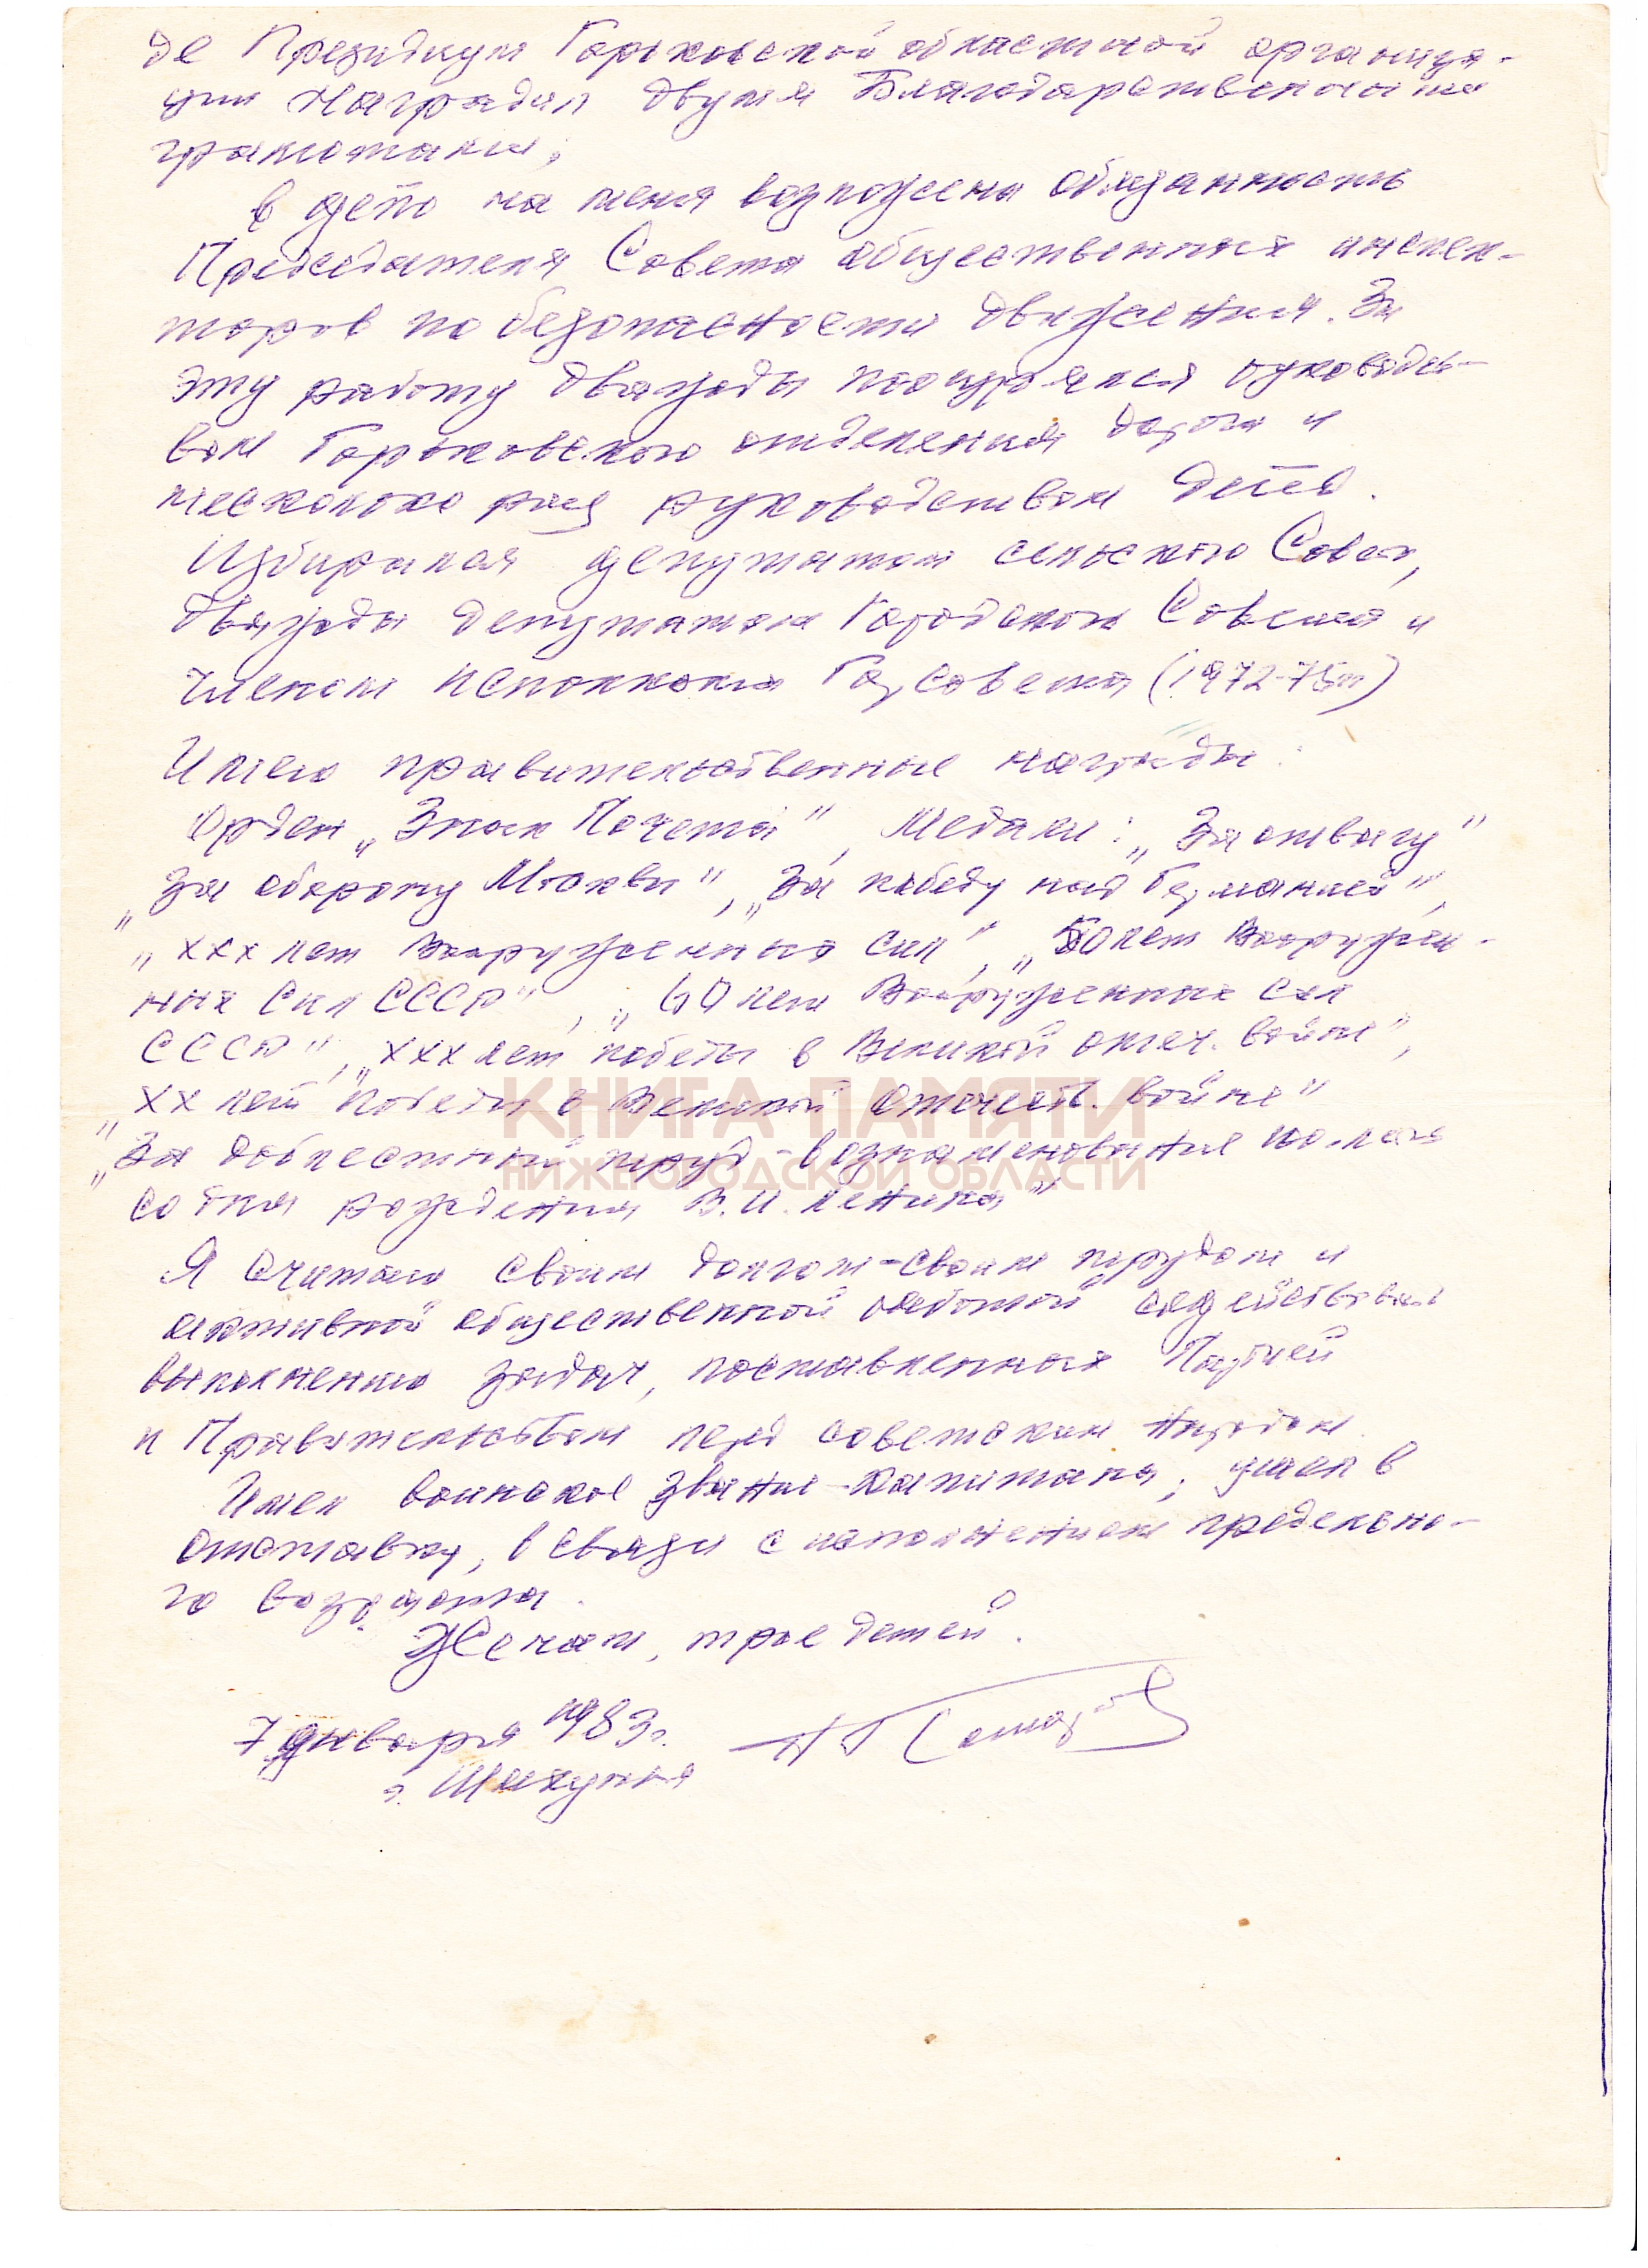 де Президиум Горьковской областной организа-
ции наградил двумя Благодарственными
грамотами.
В депо на меня возложена обязанность
Председателя Совета общественных инспек-
торов по безопасности движения. За
эту работу дважды поощрялся руководст-
вом Горьковского отделения дороги и
несколько раз руководством депо.
Избирался депутатом сельского Совета,
дважды депутатом Городского Совета и
членом исполкома Горсовета (1972-75гг)
Имею правительственные награды:
Орден „Знак Почета", Медали: „За отвагу"
„За оборону Москвы", „За победу над Германией",
„ХХХ лет Вооруженных сил", „50 лет Вооружен-
ных Сил СССР", „60 лет Вооруженных Сил
СССР", „ХХХ лет победы в Великой отеч. войне",
„ХХ лет победы в Великой Отечеств. войне"
„За доблестный труд - в ознаменование 100-лет
со дня рождения В.И. Ленина"
КНИГА ПАМЯТИ
НИЖЕГОРОДСКОЙ ОБЛАСТИ
Я считаю своим долгом - своим трудом и
активной общественной работой содействовать
выполнению задач, поставленных Партией
и Правительством перед советским народом.
Имел воинское звание - капитана, ушел в
отставку, в связи с исполнением предельно-
го возраста.
Женат, трое детей.
7 января 1983г.
г. Шахунья